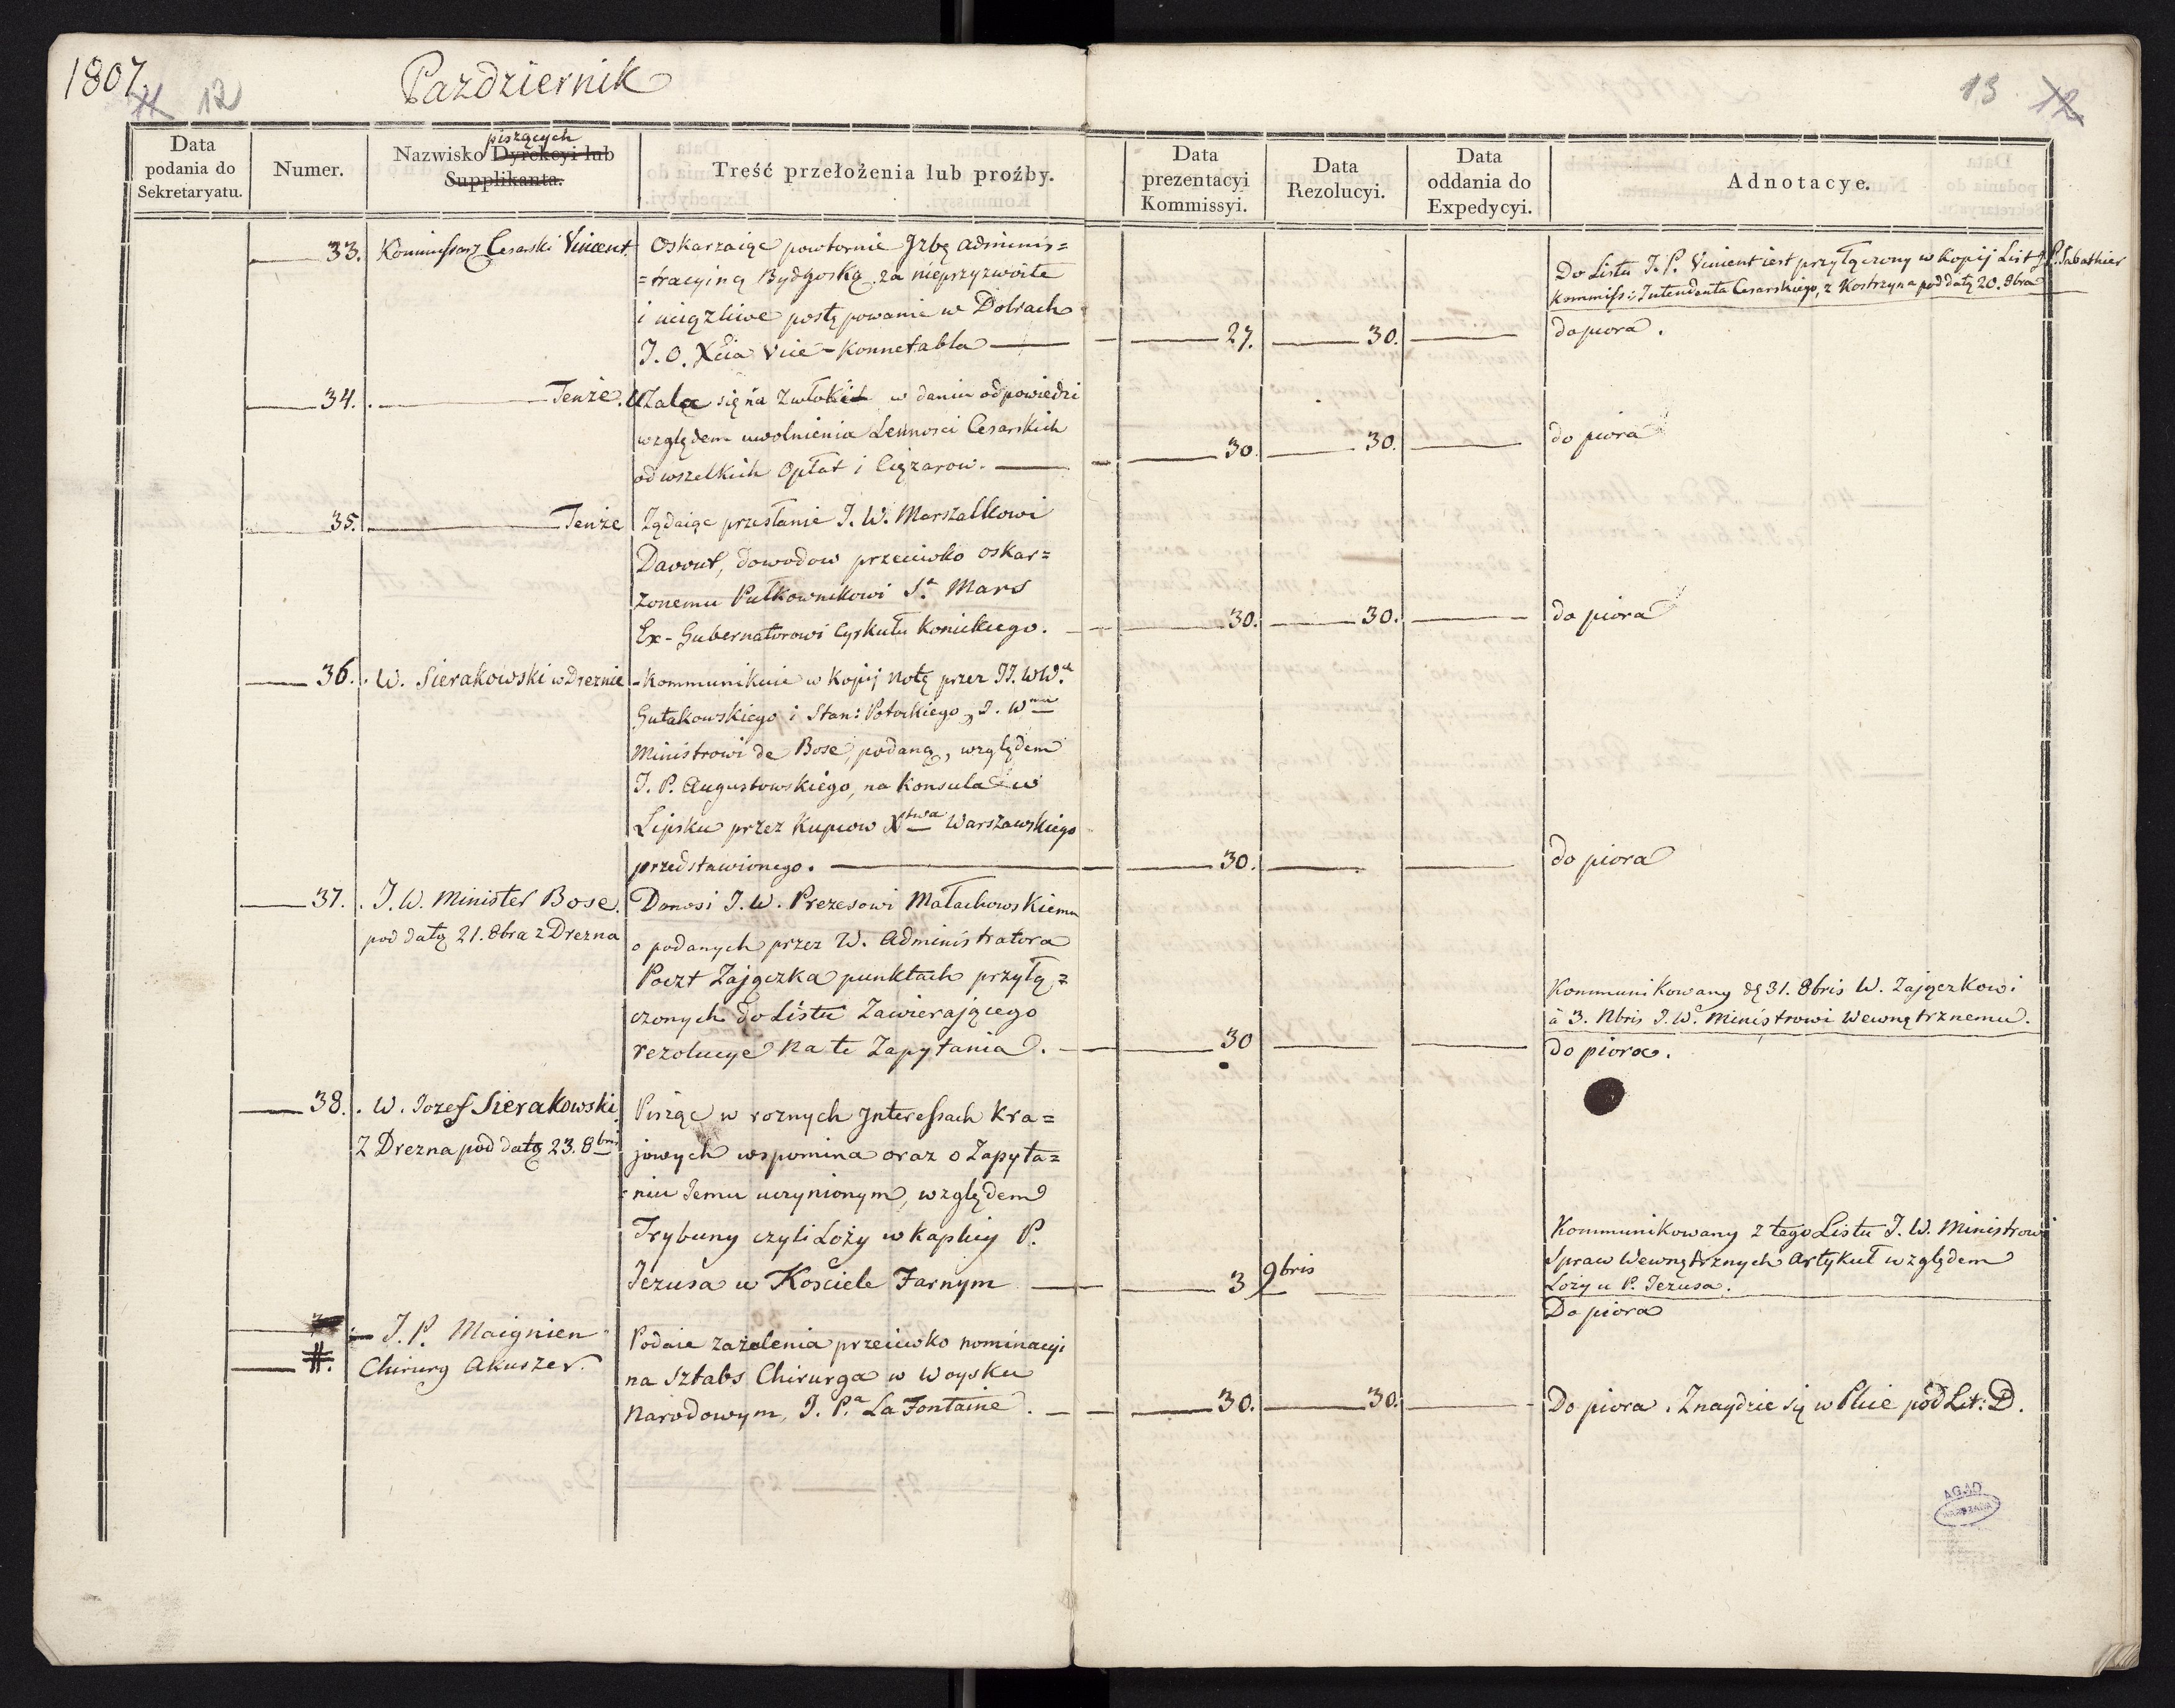 1807.
11 12
Pazdziernik
13 12
Data podania do Sekretaryatu.
Numer.
Nazwisko piszących Dyrekcyi lub Supplikanta.
Treść przełożenia lub proźby.
Data prezentacyi Kommissyi.
Data Rezolucyi.
Data oddania do Expedycyi.
Adnotacye.
33. Kommissarz Cesarski Vincent
Oskarzaiąc powtornie Jzbę adminis=
=tracyiną Bydgoską za nieprzyzwoite
i uciązliwe postępowanie w Dobrach
J. O. Xcia Vice-Konnetabla
27. 30.
Do Listu J. P. Vincent iest przyłączony w kopij List J. P. Sabathier
kommiss: Intendenta Cesarskiego, z Kostrzyna pod datą 20. 8bra
do piora.
34. Tenże.
Uzala się na zwłokę w daniu odpowiedzi
względem uwolnienia Lennosci Cesarskich
od wszelkich Opłat i Ciężarow.
30. 30.
do piora
35. Tenże
Żądaiąc przesłanie J. W. Marszalkowi
Davout, dowodow przeciwko oskar=
zonemu Pułkownikowi St. Mars
Ex-Gubernatorowi Cyrkułu Konickiego.
30. 30.
do piora
36. W. Sierakowski w Dreznie
Kommunikuie w kopij notę przez JJ. WW.
Gutakowskiego i Stan: Potockiego, J. Wmu
Ministrowi de Bose, podaną, względem
J. P. Augustowskiego, na konsula w
Lipsku przez Kupcow Xstwa Warszawskiego
przedstawionego.
30.
do piora
37. J. W. Minister Bose.
pod datą 21. 8bra z Drezna
Donosi J. W. Prezesowi Małachowskiemu
o podanych przez W. Administratora
Poczt Zajączka punktach przyłą=
czonych do Listu Zawierającego
rezolucye na te Zapytania.
30
Kommunikowany dą 31. 8bris W. Zajączkowi
à 3. Nbris J. W. Ministrowi Wewnętrznemu.
do piora.
38. W. Jozef Sierakowski
Z Drezna pod datą 23. 8bris
Pisząc w roznych Jnteressach kra=
jowych wspomina oraz o Zapyta=
=niu Jemu uczynionym, względem
Trybuny czyli Loży w kaplicy P.
Jezusa w Kosciele Farnym
3 9bris
Kommunikowany z tego Listu J. W. Ministrowi
Spraw Wewnętrznych Artykuł względem
Loży u P. Jezusa.
Do piora
#. J. P. Maignien
Chirurg Akuszer.
Podaie zażalenia przeciwko nominacyi
na Sztabs Chirurga w Woysku
Narodowym, J. P.a La Fontaine.
30. 30.
Do piora. Znaydzie się w Plice pod Lit: D.
AGAD
WARSZAWA